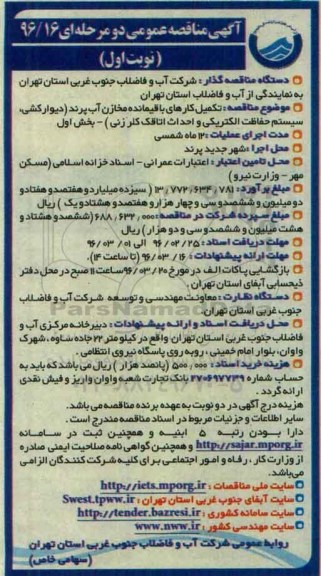 آگهی مناقصه عمومی دو مرحله‌ای ۹۶/۱۶
(نوبت اول)
دستگاه مناقصه گذار : شرکت آب و فاضلاب جنوب غربی استان تهران
به نمایندگی از آب و فاضلاب استان تهران
موضوع مناقصه : تکمیل کارهای باقیمانده مخازن آب پرند (دیوارکشی،
سیستم حفاظت الکتریکی و احداث اتاقک کلر زنی) – بخش اول
مدت اجرای عملیات : ۱۲ ماه شمسی
محل اجرا : شهر جدید پرند
محل تامین اعتبار : اعتبارات عمرانی – اسناد خزانه اسلامی (مسکن
مهر – وزارت نیرو)
مبلغ برآورد : ۱۳,۷۷۲,۶۳۴,۷۸۱ (سیزده میلیارد و هفتصد و هفتاد و
دو میلیون و ششصد و سی و چهار هزار و هفتصد و هشتاد و یک) ریال
مبلغ سپرده شرکت در مناقصه : ۶۸۸,۶۳۲,۰۰۰ (ششصد و هشتاد و
هشت میلیون و ششصد و سی و دو هزار) ریال
مهلت دریافت اسناد : ۹۶/۰۲/۲۵ الی ۹۶/۰۳/۰۱
مهلت ارائه پیشنهادات : ۹۶/۰۳/۱۶ (تا ساعت ۱۴)
بازگشایی پاکات الف در مورخ ۹۶/۰۳/۲۰ ساعت ۱۱ صبح در محل دفتر
ذیحسابی آبفای استان تهران .
دستگاه نظارت : معاونت مهندسی و توسعه شرکت آب و فاضلاب
جنوب غربی استان تهران.
محل دریافت اسناد و ارائه پیشنهادات : دبیرخانه مرکزی آب و
فاضلاب جنوب غربی استان تهران واقع در کیلومتر ۲۲ جاده ساوه، شهرک
واوان، بلوار امام خمینی ، روبه روی پاسگاه نیروی انتظامی .
هزینه خرید اسناد : ۵۰۰,۰۰۰ (پانصد هزار) ریال می باشد که باید به
حساب شماره ۲۷۰۶۹۷۷۳۹ بانک تجارت شعبه واوان واریز و فیش نقدی
ارائه گردد .
هزینه درج آگهی در دو نوبت به عهده برنده مناقصه می باشد.
سایر اطلاعات و جزئیات مربوط در اسناد مناقصه مندرج است .
دارا بودن رتبه ۵ ابنیه و همچنین ثبت در سامانه
http://sajar.mporg.ir و همچنین گواهی نامه صلاحیت ایمنی صادره
از وزارت کار ، رفاه و امور اجتماعی برای کلیه شرکت کنندگان الزامی
می باشد.
سایت ملی مناقصات : http://iets.mporg.ir
سایت آبفای جنوب غربی استان تهران : Swest.tpww.ir
سایت سامانه کشوری : http://tender.bazresi.ir
سایت مهندسی کشور : www.nww.ir
روابط عمومی شرکت آب و فاضلاب جنوب غربی استان تهران
(سهامی خاص)